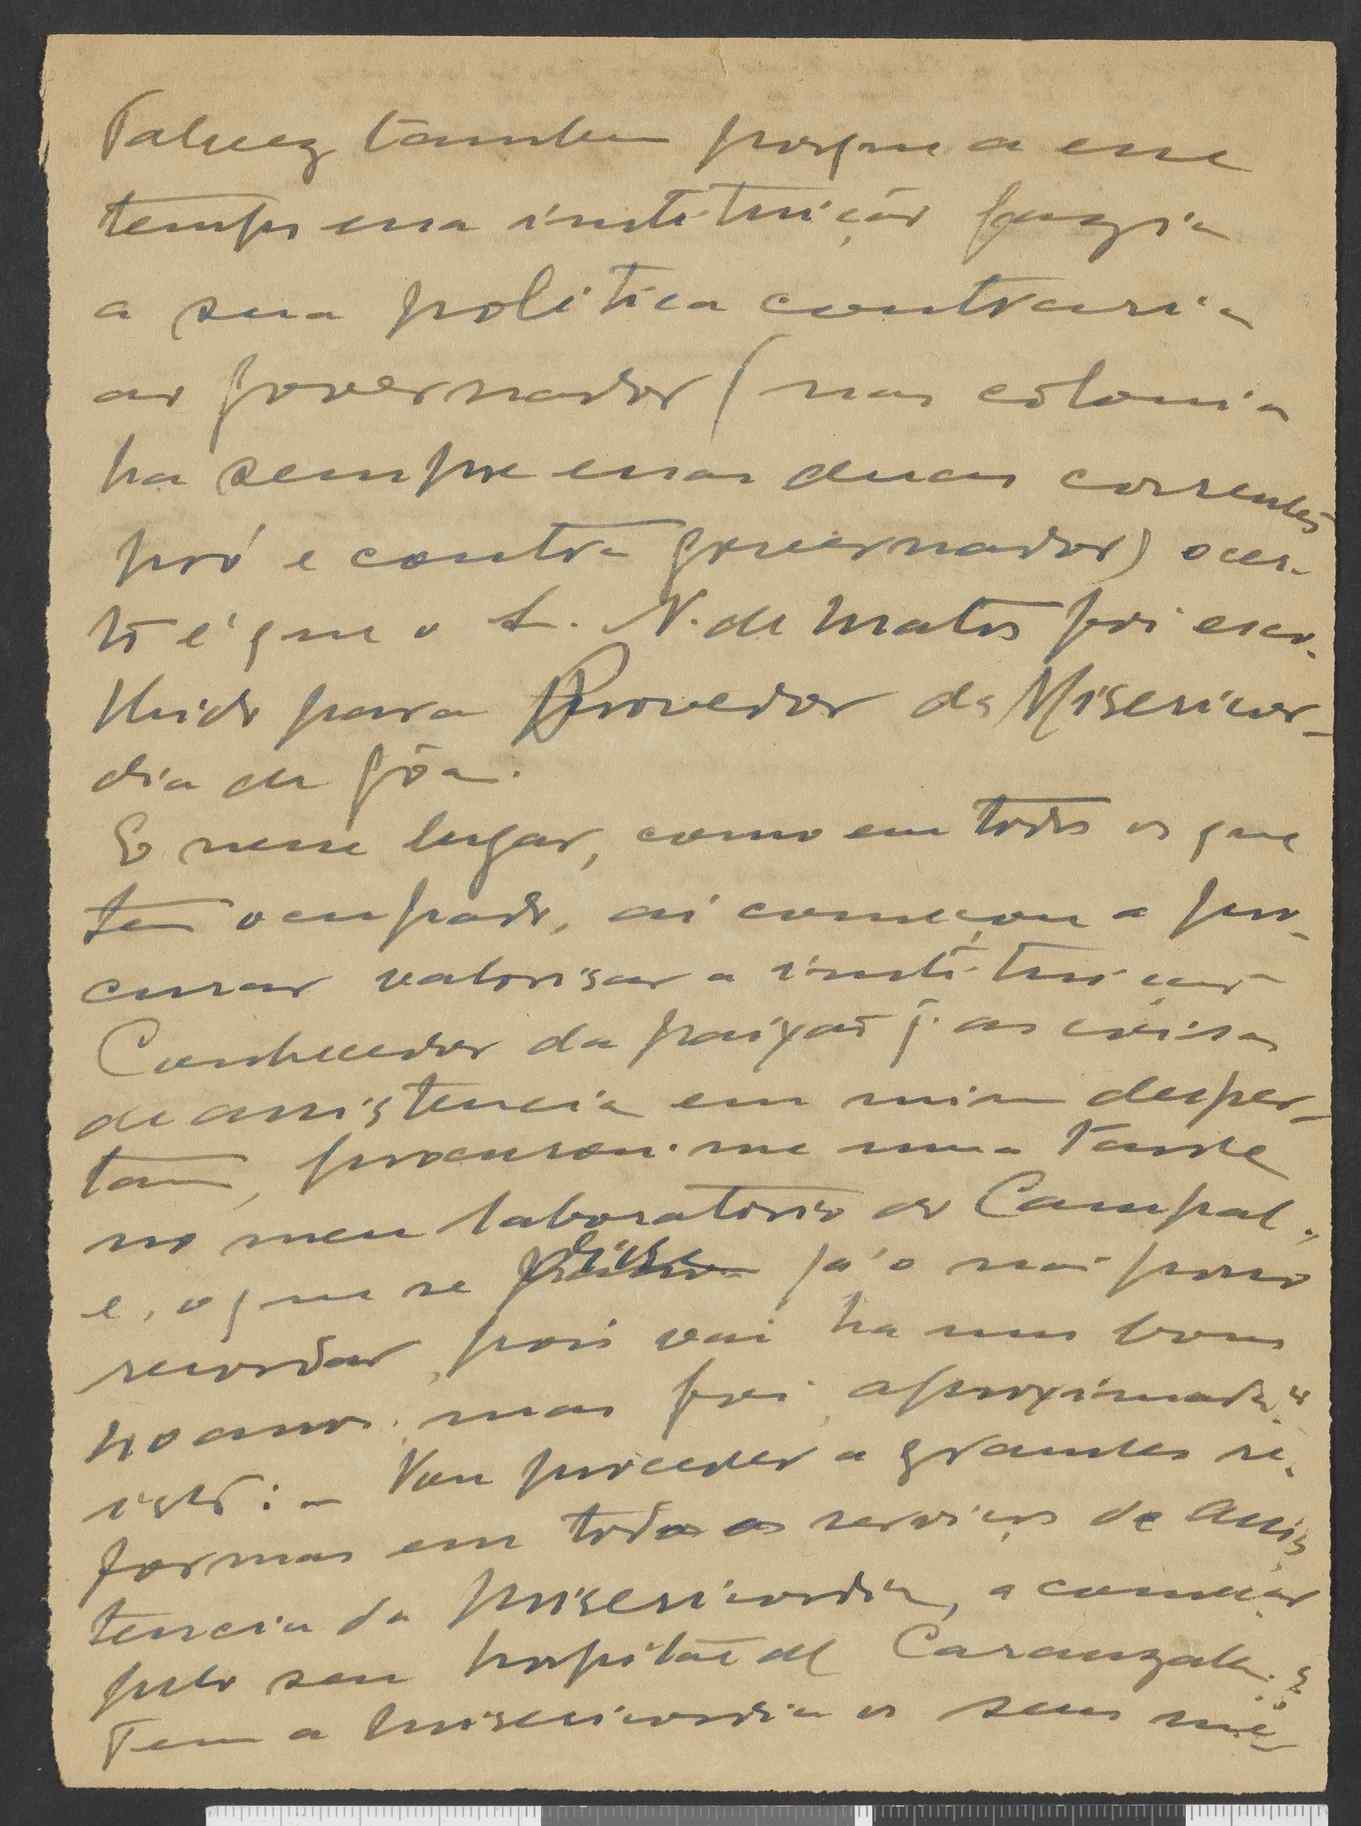 Talvez tambem porque a esse
tempo essa instituição fazia
a sua politica contraria
ao governador (nas colonia
ha sempre essas duas correntes
pró e contra governador) o cer-
to é que o L. N. de Matos foi esco-
lhido para Provedor da Misericor-
dia de Gôa.
E nesse lugar, como em todos os que
tem ocupado, aí começou a pro-
curar valorisar a instituição
Conhecedor da paixão q. as coisas
de assistencia em mim desper-
tam, procurou-me uma tarde
no meu laboratorio do Campal,
e, o que se disse já o não posso
recordar, pois vai ha uns bons
anos; mas foi, aproximada.te
isto: - Vou proceder a grandes re-
formas em todos os serviços de assis
tencia da Misericordia, a começar
pelo seu hospital de Caranzalem.
Tem a Misericordia os seus mé-